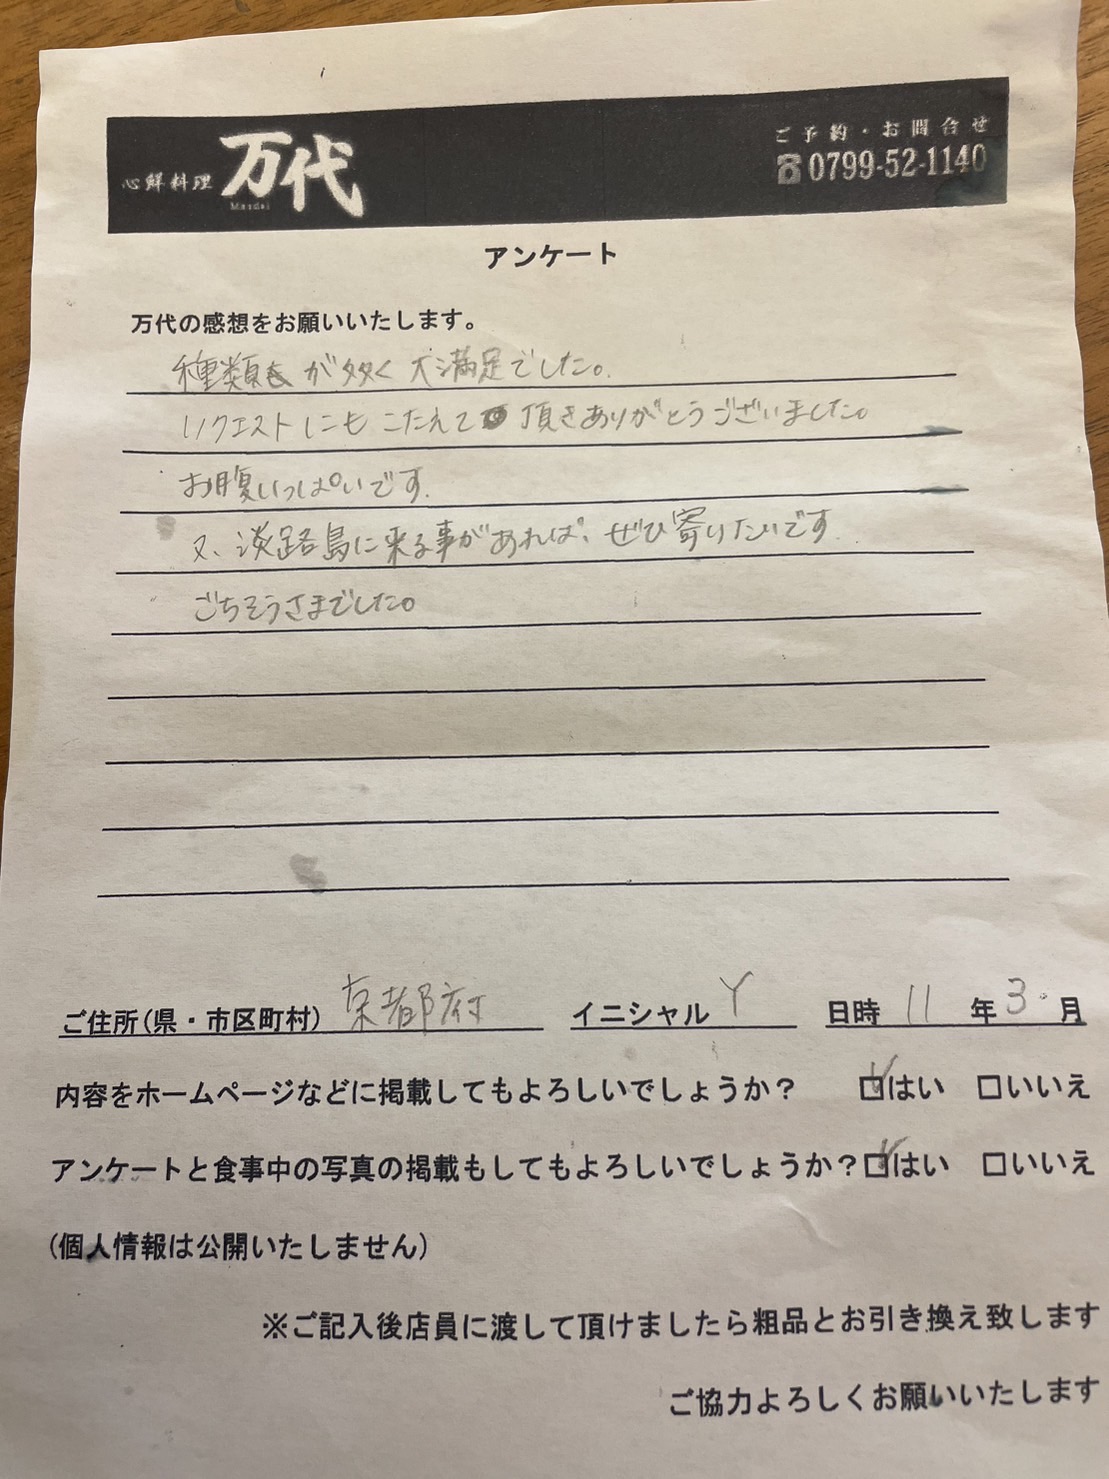 心鮮料理 万代
Mandai
ご予約・お問合せ
☎0799-52-1140
アンケート
万代の感想をお願いいたします。
種類が多く大満足でした。
リクエストにもこたえて頂きありがとうございました。
お腹いっぱいです.
又、淡路島に来る事があれば、ぜひ寄りたいです.
ごちそうさまでした。
ご住所(県・市区町村) 京都府 イニシャル Y 日時 11 年 3 月
内容をホームページなどに掲載してもよろしいでしょうか? ☑はい □いいえ
アンケートと食事中の写真の掲載もしてもよろしいでしょうか?☑はい □いいえ
(個人情報は公開いたしません)
※ご記入後店員に渡して頂けましたら粗品とお引き換え致します
ご協力よろしくお願いいたします